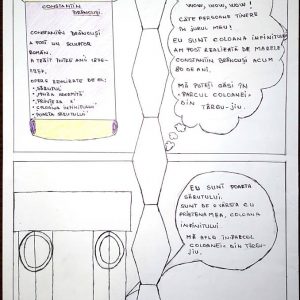 CONSTANTIN
BRÂNCUȘI
CONSTANTIN BRÂNCUȘI
A FOST UN SCULPTOR
ROMÂN.
A TRĂIT ÎNTRE ANII 1876-
1957.
OPERE REALIZATE DE EL:
• „SĂRUTUL"
• „MUZA ADORMITĂ"
• „PRINȚESA X"
• „COLOANA INFINITULUI"
• „POARTA SĂRUTULUI"
WOW, WOW, WOW!
CÂTE PERSOANE TINERE
ÎN JURUL MEU!
EU SUNT COLOANA INFINITULUI
AM FOST REALIZATĂ DE MARELE
CONSTANTIN BRÂNCUȘI ACUM
80 DE ANI.
MĂ PUTEȚI GĂSI ÎN
„PARCUL COLOANEI"
DIN TÂRGU-JIU.
EU SUNT POARTA
SĂRUTULUI.
SUNT DE O VÂRSTĂ CU
PRIETENA MEA, COLOANA
INFINITULUI
MĂ AFLU ÎN PARCUL
COLOANEI" DIN TÂRGU-
JIU.